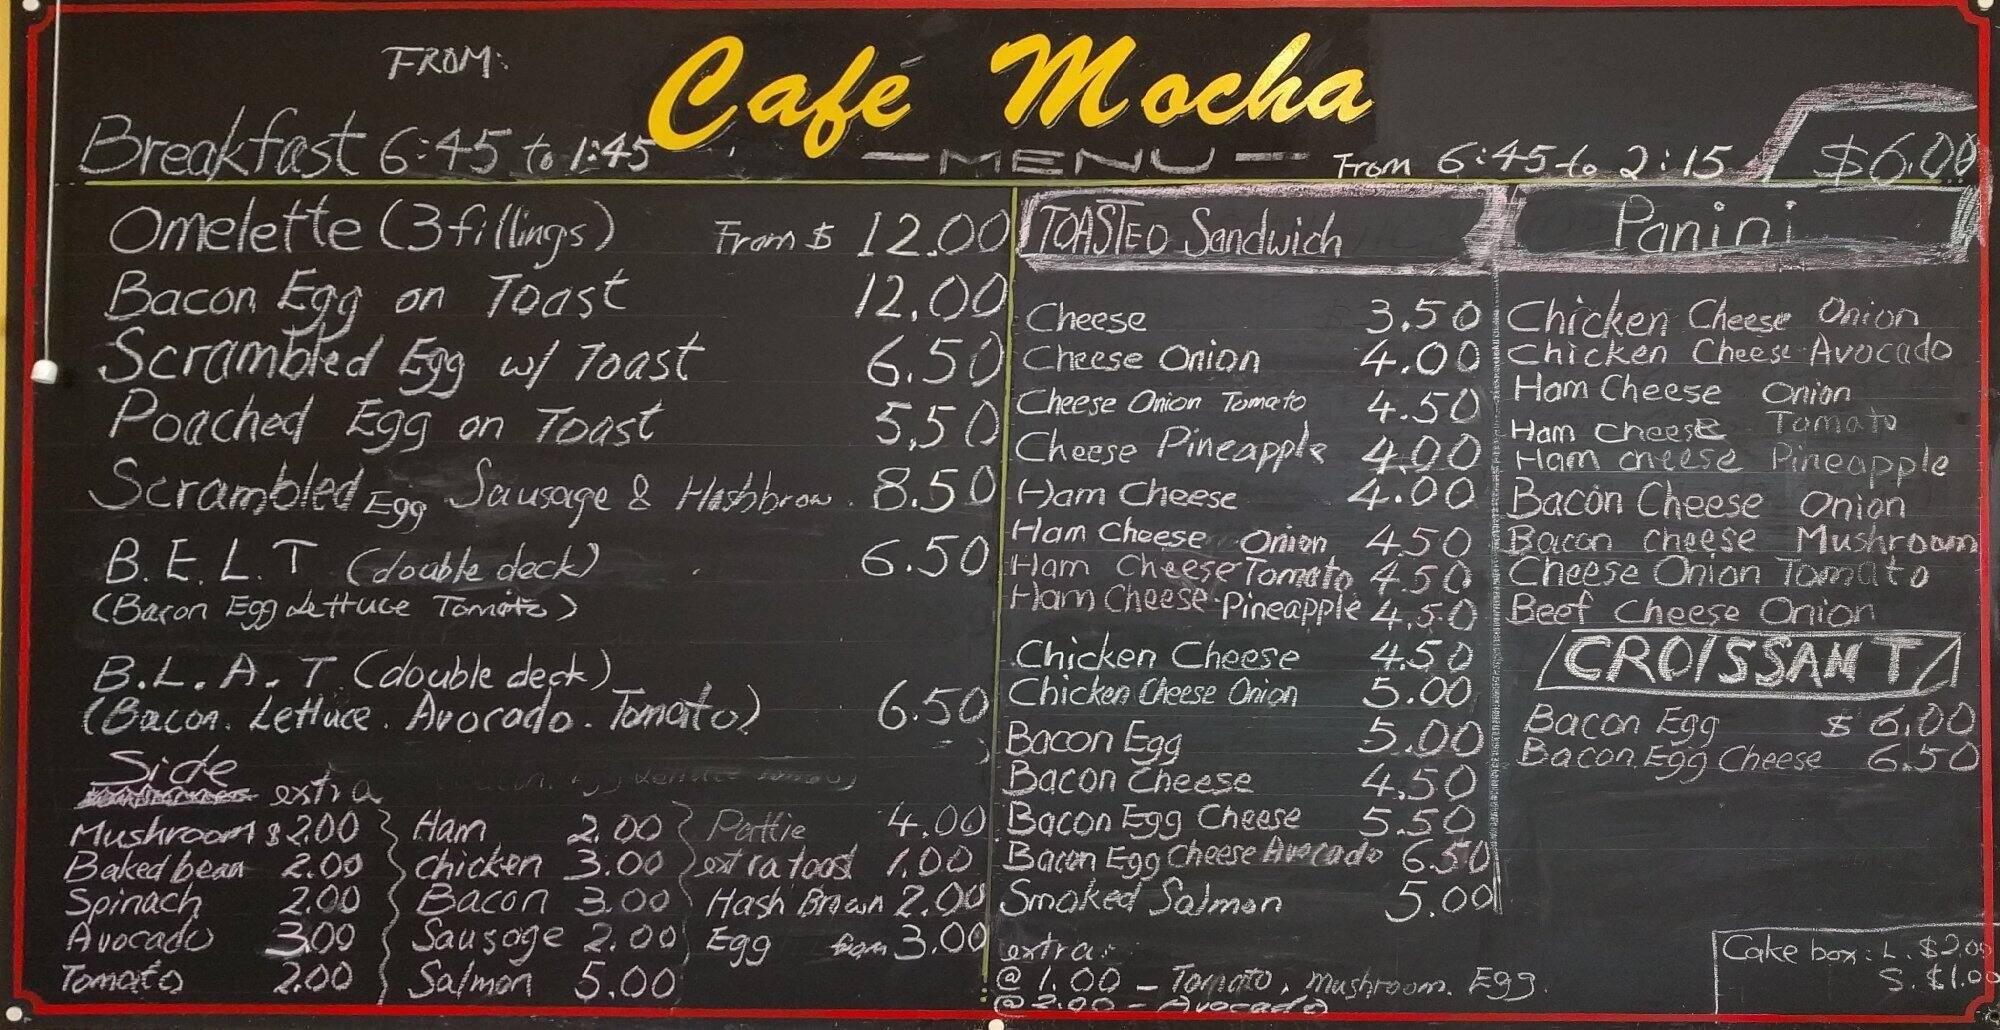 Café Mocha
MENU
FROM:
Breakfast 6:45 to 1:45
Omelette (3 fillings) From $ 12.00
Bacon Egg on Toast 12.00
Scrambled Egg w/ Toast 6.50
Poached Egg on Toast 5,50
Scrambled Egg Sausage & Hashbrow. 8.50
B.E.L.T (double deck) 6.50
(Bacon Egg Lettuce Tomato)
B.L.A.T (double deck)
(Bacon. Lettuce. Avocado. Tomato) 6.50
Side
extra
Mushroom $2.00
Baked bean 2.00
Spinach 2.00
Avocado 3.00
Tomato 2.00
Ham 2.00
chicken 3.00
Bacon 3.00
Sausage 2.00
Salmon 5.00
Pattie 4.00
extra toast 1.00
Hash Brown 2.00
Egg from 3.00
From 6:45 to 2:15
TOASTED Sandwich
Cheese 3.50
Cheese Onion 4.00
Cheese Onion Tomato 4.50
Cheese Pineapple 4.00
Ham Cheese 4.00
Ham Cheese Onion 4.50
Ham Cheese Tomato 4.50
Ham Cheese Pineapple 4.50
Chicken Cheese 4.50
Chicken Cheese Onion 5.00
Bacon Egg 5.00
Bacon Cheese 4.50
Bacon Egg Cheese 5.50
Bacon Egg Cheese Avocado 6.50
Smoked Salmon 5.00
extra:
@ 1.00 - Tomato, Mushroom. Egg.
@ 2.00 - Avocado
$6.00
Panini
Chicken Cheese Onion
Chicken Cheese Avocado
Ham Cheese Onion
Ham cheese Tomato
Ham cheese Pineapple
Bacon Cheese Onion
Bacon cheese Mushroom
Cheese Onion Tomato
Beef Cheese Onion
CROISSANT
Bacon Egg $ 6.00
Bacon Egg Cheese 6.50
Cake box: L. $2.00
S. $1.00